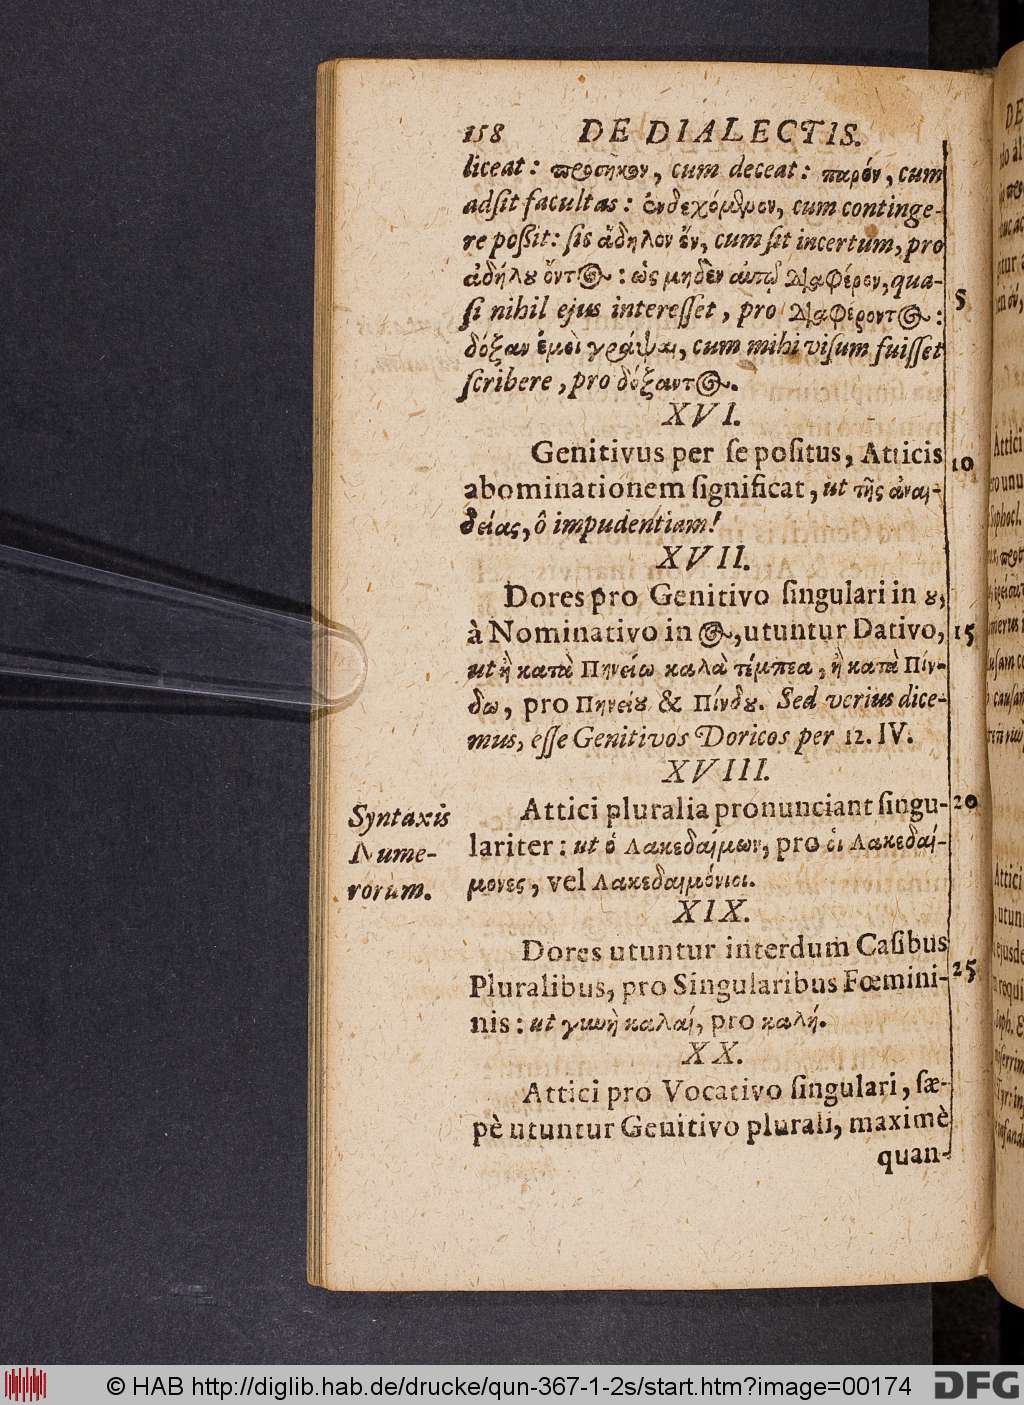 158 DE DIALECTIS.
liceat: προσῆκον, cum deceat: παρόν, cum
adsit facultas: ἐνδεχόμενον, cum continge-
re poßit: sic ἄδηλον ὄν, cum sit incertum, pro
ἀδήλου ὄντος: ὡς μηδὲν αὐτῷ διαφέρον, qua-
si nihil ejus interesset, pro διαφέροντος:
δόξαν ἐμοὶ γράψαι, cum mihi visum fuisset
scribere, pro δόξαντος.
XVI.
Genitivus per se positus, Atticis
abominationem significat, ut τῆς ἀναι-
δείας, ô impudentiam!
XVII.
Dores pro Genitivo singulari in ου,
à Nominativo in ος, utuntur Dativo,
ut ἢ κατὰ Πηνείω καλὰ τέμπεα, ἢ κατὰ Πίν-
δω, pro Πηνείου & Πίνδου. Sed verius dice-
mus, esse Genitivos Doricos per 12. IV.
XVIII.
Attici pluralia pronunciant singu-
lariter: ut ὁ Λακεδαίμων, pro οἱ Λακεδαί-
μονες, vel Λακεδαιμόνιοι.
XIX.
Dores utuntur interdum Casibus
Pluralibus, pro Singularibus Fœmini-
nis: ut γυνὴ καλαί, pro καλή.
XX.
Attici pro Vocativo singulari, sæ-
pè utuntur Genitivo plurali, maximè
quan-
Syntaxis
Nume-
rorum.
5
10
15
20
25
© HAB http://diglib.hab.de/drucke/qun-367-1-2s/start.htm?image=00174
DFG